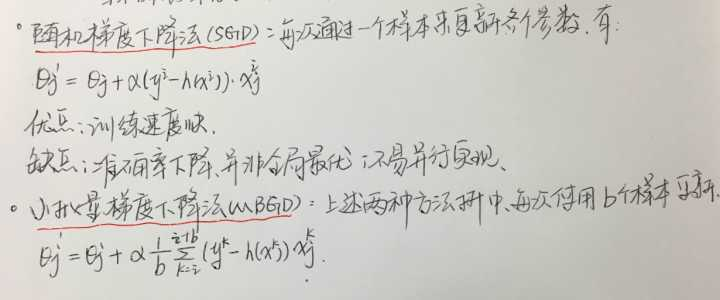 。随机梯度下降法(SGD):每次通过一个样本来更新各个参数.有:
θj' = θj + α(y^i - h(x^i))·x_j^i
优点:训练速度快.
缺点:准确率下降,并非全局最优;不易并行实现.
。小批量梯度下降法(MBGD):上述两种方法折中、每次使用b个样本更新.
θj' = θj + α 1/b Σ_{k=i}^{i+b} (y^k - h(x^k)) x_j^k.